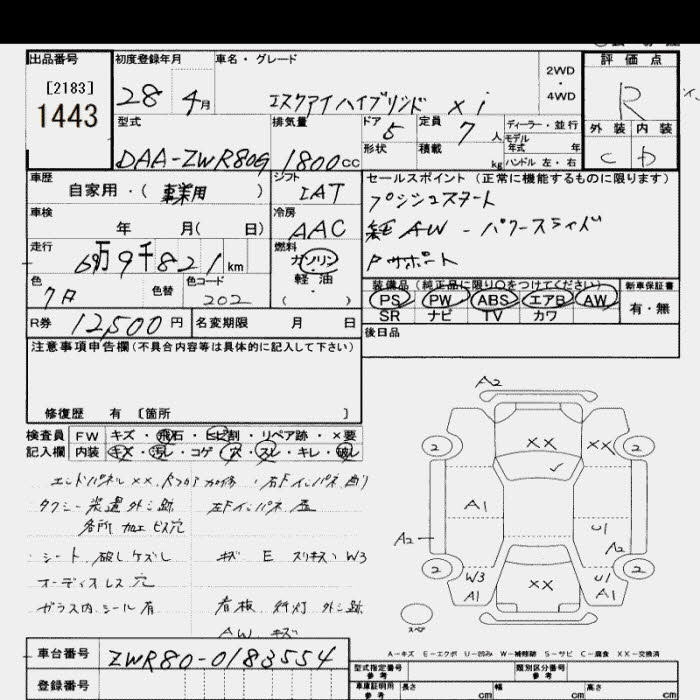 出品番号 初度登録年月 車名・グレード 2WD・4WD 評価点
[2183]
1443 28 4月 エスクァイハイブリッド Xi R
型式 排気量 ドア 5 定員 7人 ディーラー・並行 外装 内装
形状 積載 kg モデル年式 年 ハンドル 左・右 C D
DAA-ZWR80G 1800cc
車歴 シフト セールスポイント (正常に機能するものに限ります)
自家用・(事業用) IAT プッシュスタート
車検 冷房 純AW - パワースライド
年 月( 日) AAC Pサポート
走行 燃料
6万9千821km ガソリン・軽油( )
色 色替 色コード 装備品 (純正品に限り○をつけてください) 新車保証書
クロ 202 PS PW ABS エアB AW 有・無
SR ナビ TV カワ
R券 12,500円 名変期限 月 日 後日品
注意事項申告欄(不具合内容等は具体的に記入して下さい)
修復歴 有 [箇所 ]
検査員 FW キズ・飛石・ヒビ割・リペア跡・×要
記入欄 内装 キズ・汚レ・コゲ・穴・スレ・キレ・破レ
エンドパネル XX,
タクシー装置外し跡 左Fインパネ
各所加工ビス穴
シート 破レ ケズレ キズ E スリキズ W3
オーディオレス 穴
ガラス内シール有 看板 行灯 外し跡
AW キズ
A2
2 XX XX 2
A1 U1
A2 A2
2 W3 A1 XX U1 A1 2
スペア
A-キズ E-エクボ U-凹み W-補修跡 S-サビ C-腐食 XX-交換済
車台番号 ZWR80-0183554 型式指定番号 参考 類別区分番号 参考
登録番号 車庫証明用 参考 長さ cm 幅 cm 高さ cm